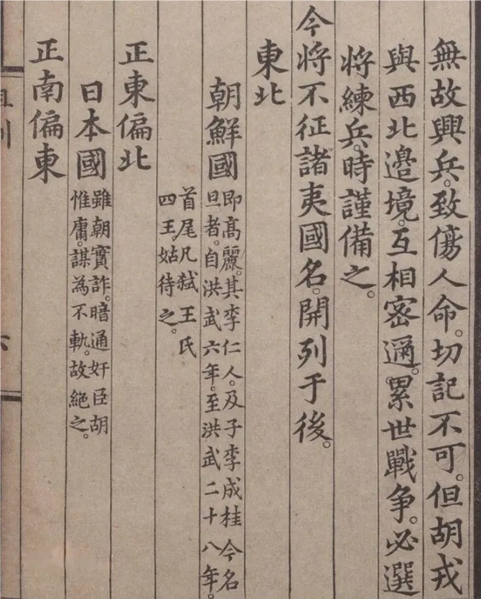 無故興兵。致傷人命。切記不可。但胡戎
與西北邊境。互相密邇。累世戰争。必選
將練兵。時謹備之。
今將不征諸夷國名。開列于後。
東北
朝鮮國
即高麗。其李仁人。及子李成桂今名
旦者。自洪武六年。至洪武二十八年。
首尾凡弑王氏
四王。姑待之。
正東偏北
日本國
雖朝實詐。暗通奸臣胡
惟庸。謀為不軌。故絕之。
正南偏東